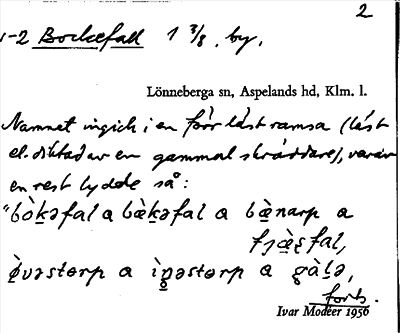 2
1-2 Bockefall 1 3/8. by.
Lönneberga sn, Aspelands hd, Klm. l.
Namnet ingick i en förr läst ramsa (läst
el. diktad av en gammal skräddare), varav
en rest lydde så:
"bòk̯əfal a bæ̀k̯əfal a bæ̀narp a
fjæ̀ʂfal,
ø̀vəstorp a ìŋəstorp a gàlə,
forts.
Ivar Modéer 1956